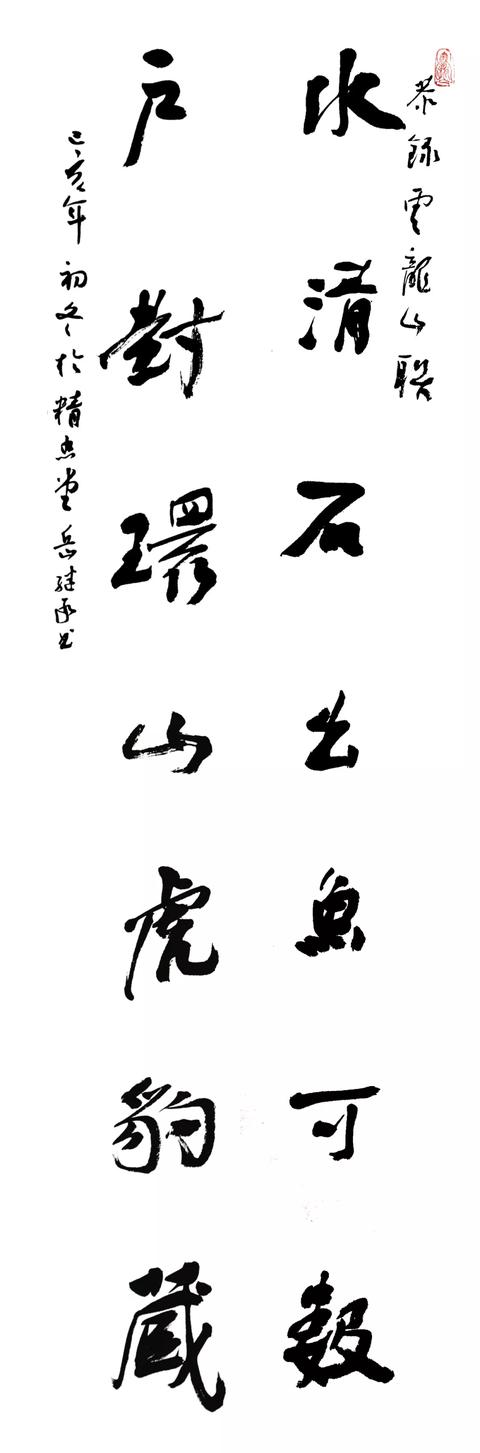 恭錄雲龍山聯
水清石出魚可數
戶對環山虎豹藏
己亥年初冬於精忠堂岳继承书